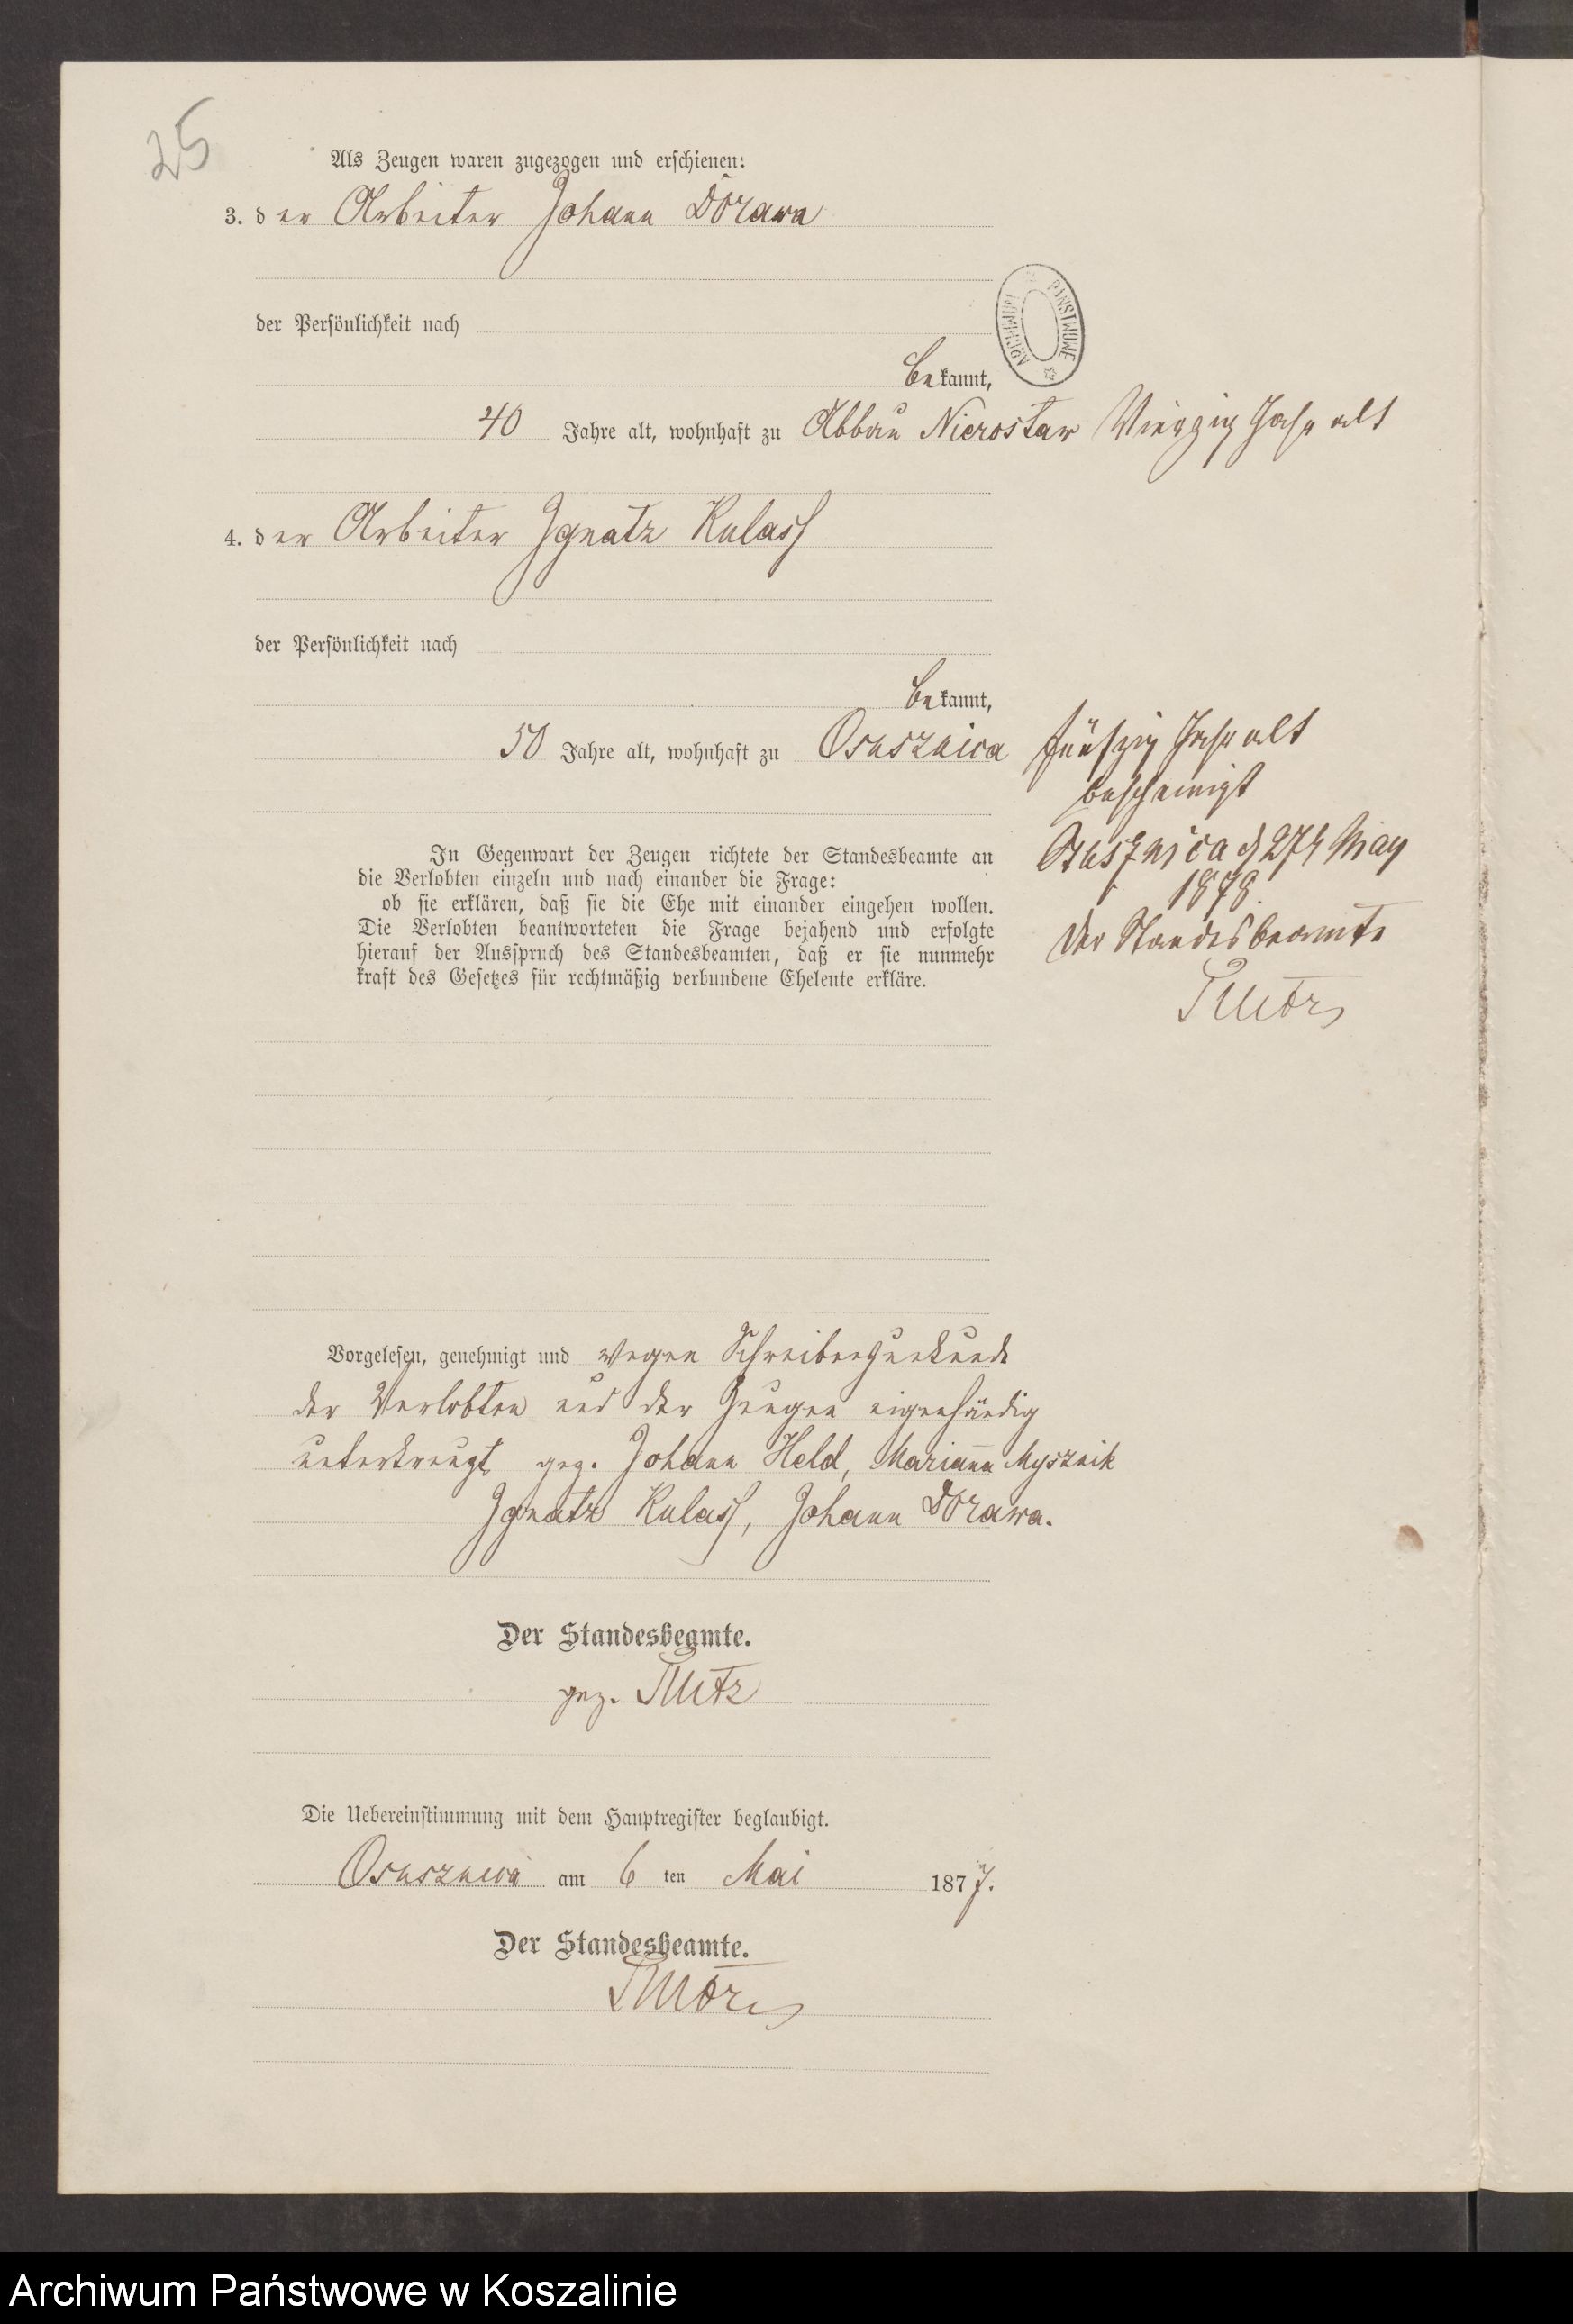 25
Als Zeugen waren zugezogen und erschienen:
3. der Arbeiter Johann Dorawa
der Persönlichkeit nach
bekannt,
40 Jahre alt, wohnhaft zu Abbau Nierostaw Vierzig Jahr alt
4. der Arbeiter Ignatz Kulass
der Persönlichkeit nach
bekannt,
50 Jahre alt, wohnhaft zu Osusznica fünfzig Jahr alt
bescheinigt
Osusznica d 27t May
1878.
Der Standesbeamte
In Gegenwart der Zeugen richtete der Standesbeamte an
die Verlobten einzeln und nach einander die Frage:
ob sie erklären, daß sie die Ehe mit einander eingehen wollen.
Die Verlobten beantworteten die Frage bejahend und erfolgte
hierauf der Ausspruch des Standesbeamten, daß er sie nunmehr
kraft des Gesetzes für rechtmäßig verbundene Eheleute erkläre.
Vorgelesen, genehmigt und wegen Schreibensunkunde
der Verlobten und der Zeugen eigenhändig
unterkreuzt gez. Johann Held, Mariann Mysznik
Ignatz Kulass, Johann Dorawa.
Der Standesbeamte.
gez.
Die Uebereinstimmung mit dem Hauptregister beglaubigt.
Osusznica am 6 ten Mai 1877.
Der Standesbeamte.
ARCHIWUM PAŃSTWOWE
Archiwum Państwowe w Koszalinie